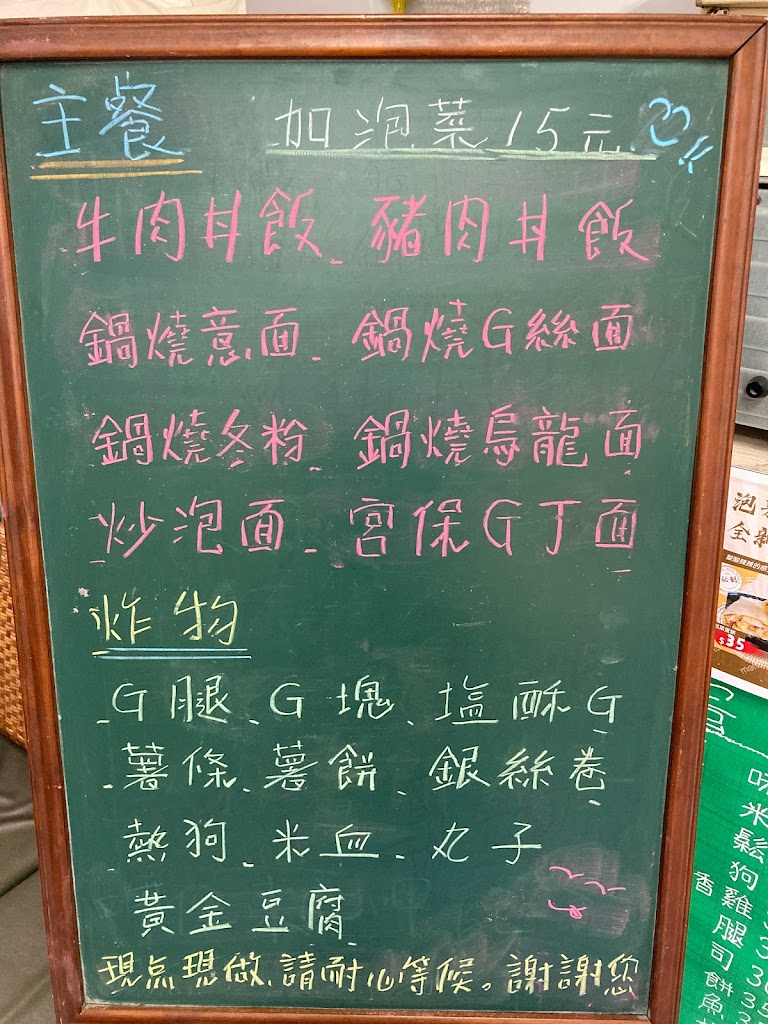 主餐 加泡菜15元
牛肉丼飯、豬肉丼飯
鍋燒意面、鍋燒G絲面
鍋燒冬粉、鍋燒烏龍面
炒泡面、宮保G丁面
炸物
G腿、G塊、塩酥G
薯條、薯餅、銀絲卷
熱狗、米血、丸子
黃金豆腐
現点現做、請耐心等候。謝謝您
泡
全新
$35
米
鬆
狗
香雞
腿 3
司 30
餅 35
魚 35